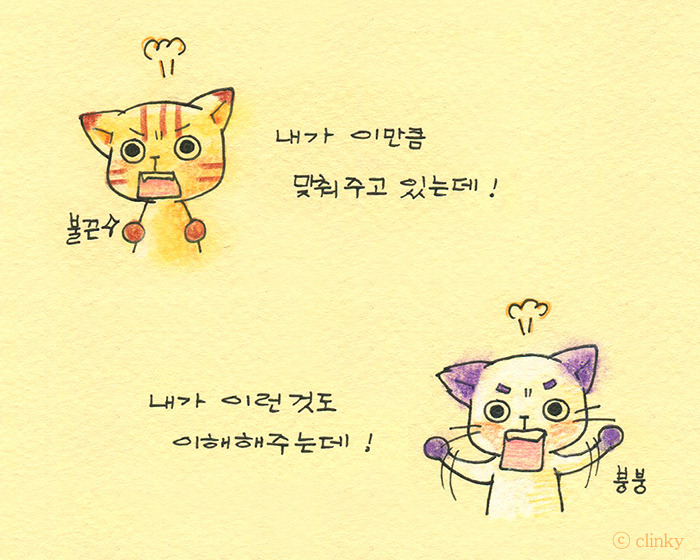 내가 이만큼
맞춰주고 있는데!
불끈
내가 이런것도
이해해주는데!
붕붕
ⓒ clinky